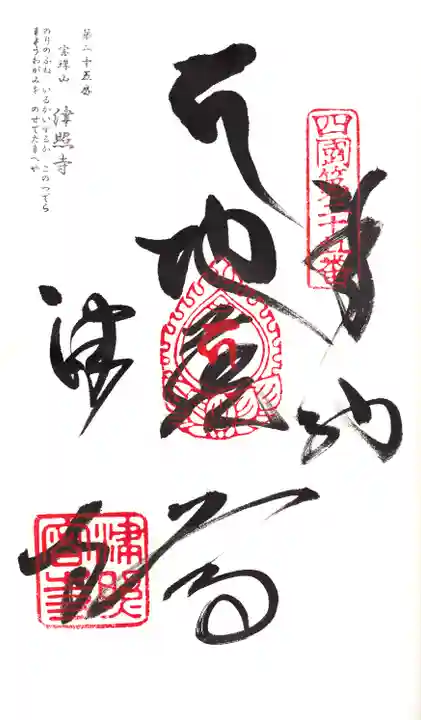 四國第二十五番
奉納
地蔵
津寺
第二十五番
宝珠山
津照寺
のりのふね いるかいずるか このつでら
まようわがみを のせてたまへや